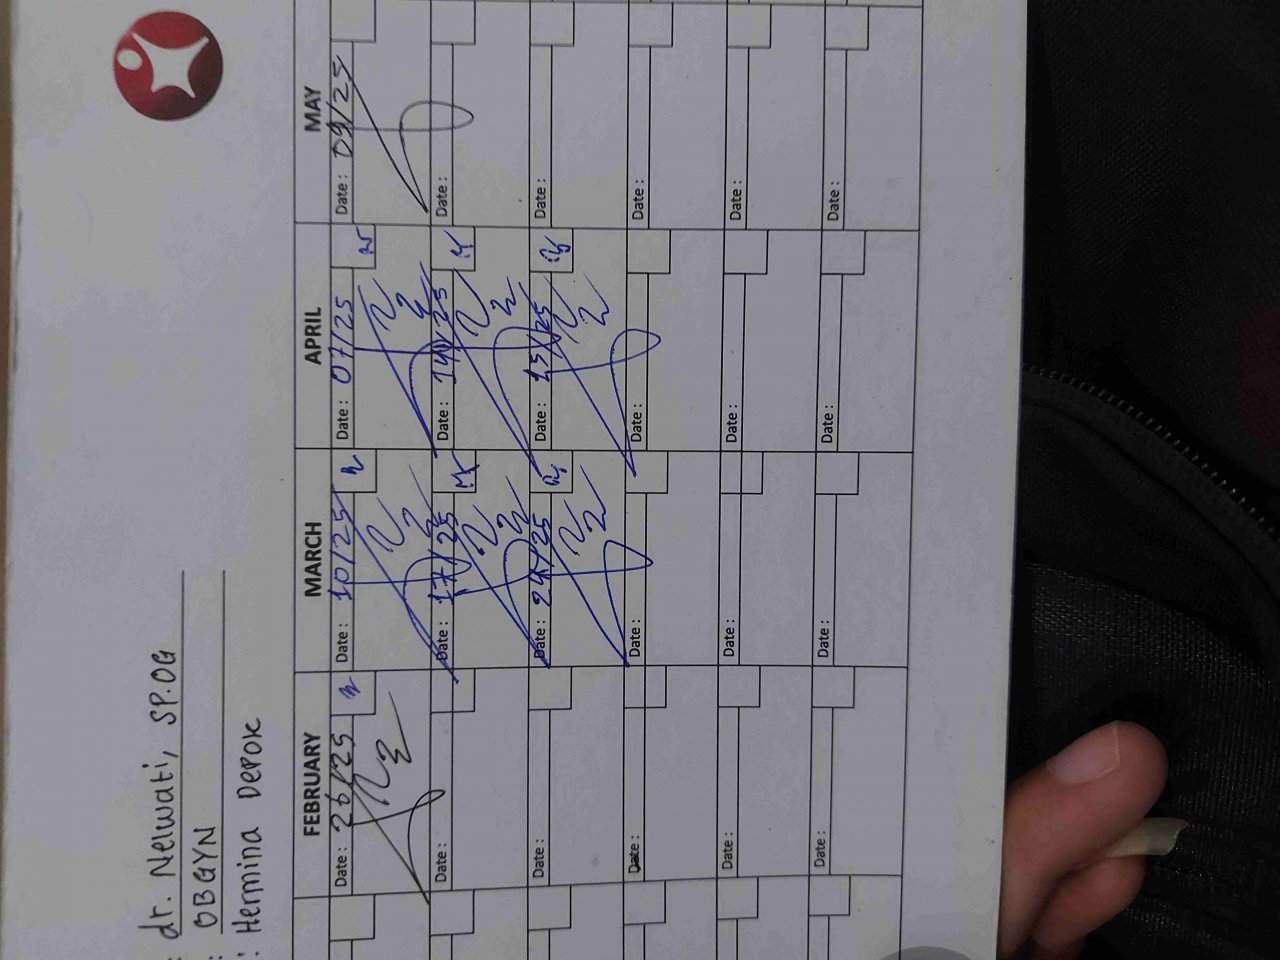 : dr. Nelwati, SP.OG
: OBGYN
: Hermina Depok
FEBRUARY MARCH APRIL MAY
Date : 26/25 Date : 10/25 Date : 07/25 Date : 09/25
Date : Date : 17/25 Date : 14/25 Date :
Date : Date : 24/25 Date : 15/25 Date :
Date : Date : Date : Date :
Date : Date : Date : Date :
Date : Date : Date : Date :